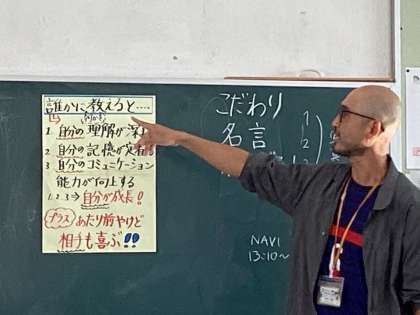 誰かに教えると....
何かを
1. 自分の理解が深
2. 自分の記憶が
3 自分のコミュニケーション
能力が向上する
1.2.3⇒自分が成長！
プラス あたり前やけど
相手も喜ぶ!!
こだわり
名言
1
2
NAVI
13:10～